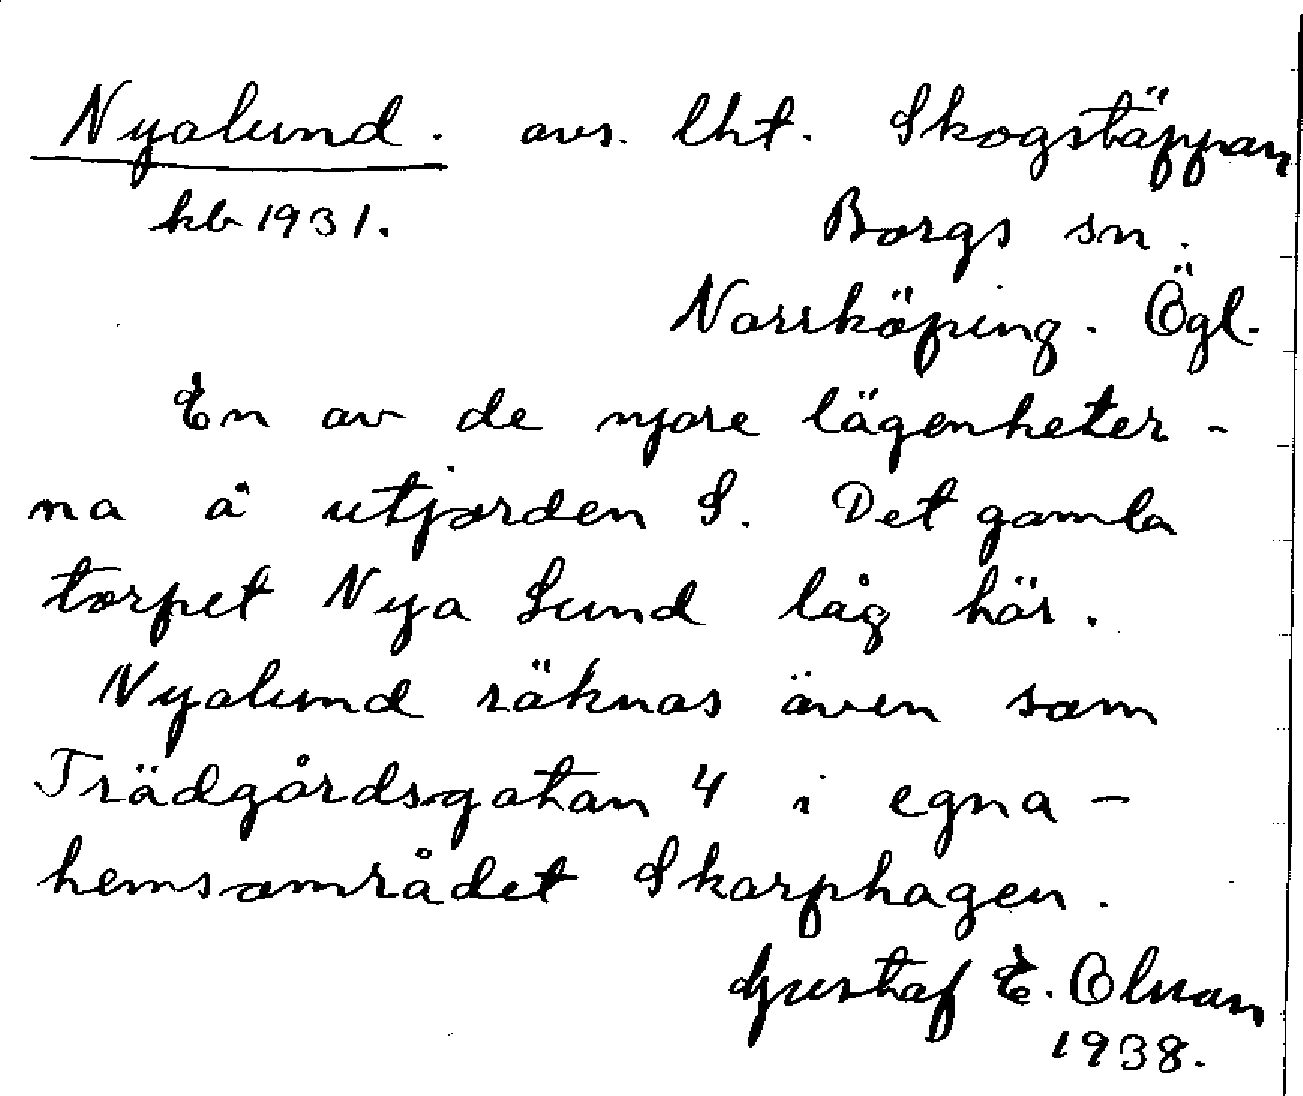 Nyalund. avs. lht. Skogstäppan
kb 1931. Borgs sn.
Norrköping. Ögl.
En av de nyare lägenheter-
na å utjorden S. Det gamla
torpet Nya Lund låg här.
Nyalund räknas även som
Trädgårdsgatan 4 i egna-
hemsområdet Skarphagen.
Gustaf E. Olsson
1938.